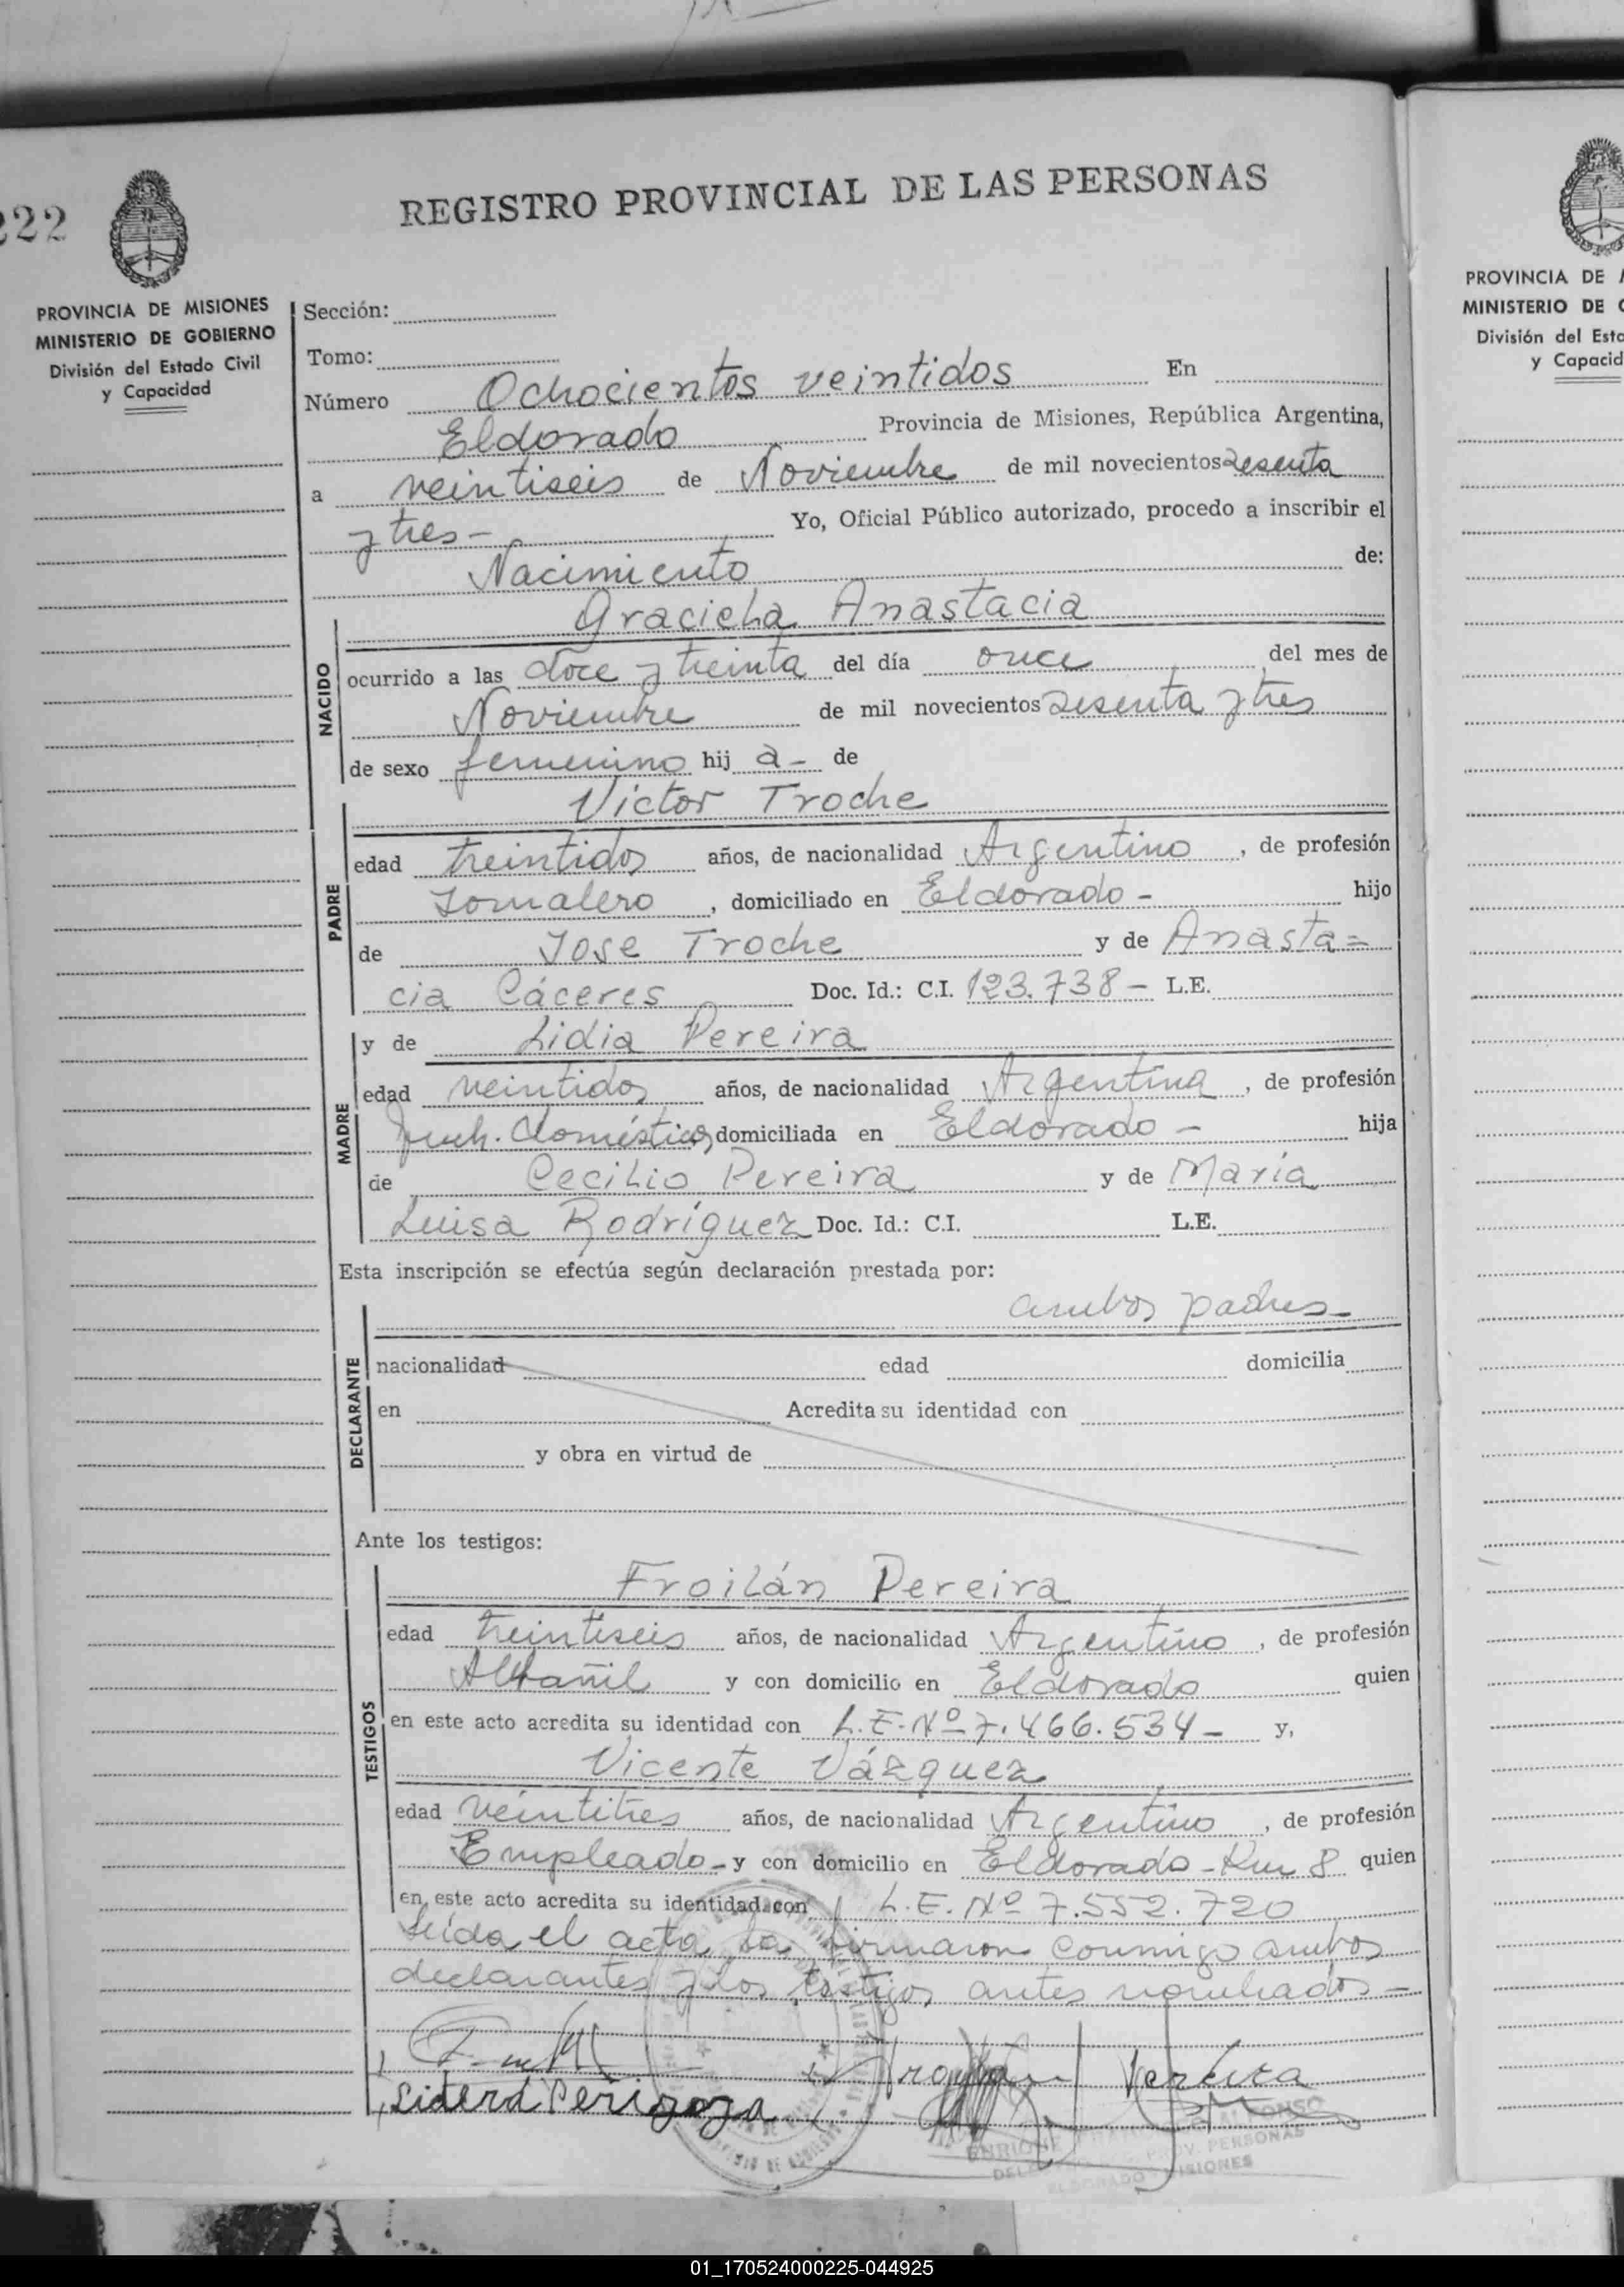 222
REGISTRO PROVINCIAL DE LAS PERSONAS
PROVINCIA DE MISIONES
MINISTERIO DE GOBIERNO
División del Estado Civil
y Capacidad
Sección:
Tomo:
Número Ochocientos veintidos En
Eldorado Provincia de Misiones, República Argentina,
a veintiseis de Noviembre de mil novecientos sesenta
y tres- Yo, Oficial Público autorizado, procedo a inscribir el
Nacimiento de:
NACIDO
Graciela Anastacia
ocurrido a las doce y treinta del día once del mes de
Noviembre de mil novecientos sesenta y tres
de sexo femenino hij a- de
PADRE
Victor Troche
edad treintidos años, de nacionalidad Argentino, de profesión
Jornalero, domiciliado en Eldorado- hijo
de Jose Troche y de Anasta=
cia Cáceres Doc. Id.: C.I. 123.738- L.E.
MADRE
y de Lidia Pereira
edad veintidos años, de nacionalidad Argentina, de profesión
domésticos, domiciliada en Eldorado- hija
de Cecilio Pereira y de María
Luisa Rodríguez Doc. Id.: C.I. L.E.
Esta inscripción se efectúa según declaración prestada por:
ambos padres-
DECLARANTE
nacionalidad edad domicilia
en Acredita su identidad con
y obra en virtud de
Ante los testigos:
TESTIGOS
Froilán Pereira
edad treintiseis años, de nacionalidad Argentino, de profesión
Albañil y con domicilio en Eldorado quien
en este acto acredita su identidad con L.E. Nº 7.466.534- y,
Vicente Vázquez
edad veintitres años, de nacionalidad Argentino, de profesión
Empleado- y con domicilio en Eldorado-Km 8 quien
en este acto acredita su identidad con L.E. Nº 7.552.720
Leída el acta la firmaron conmigo ambos
declarantes y los testigos antes nombrados-
PROV. PERSONAS
ELDORADO MISIONES
PROVINCIA DE
MINISTERIO DE
División del Esta
y Capacid
01_170524000225-044925